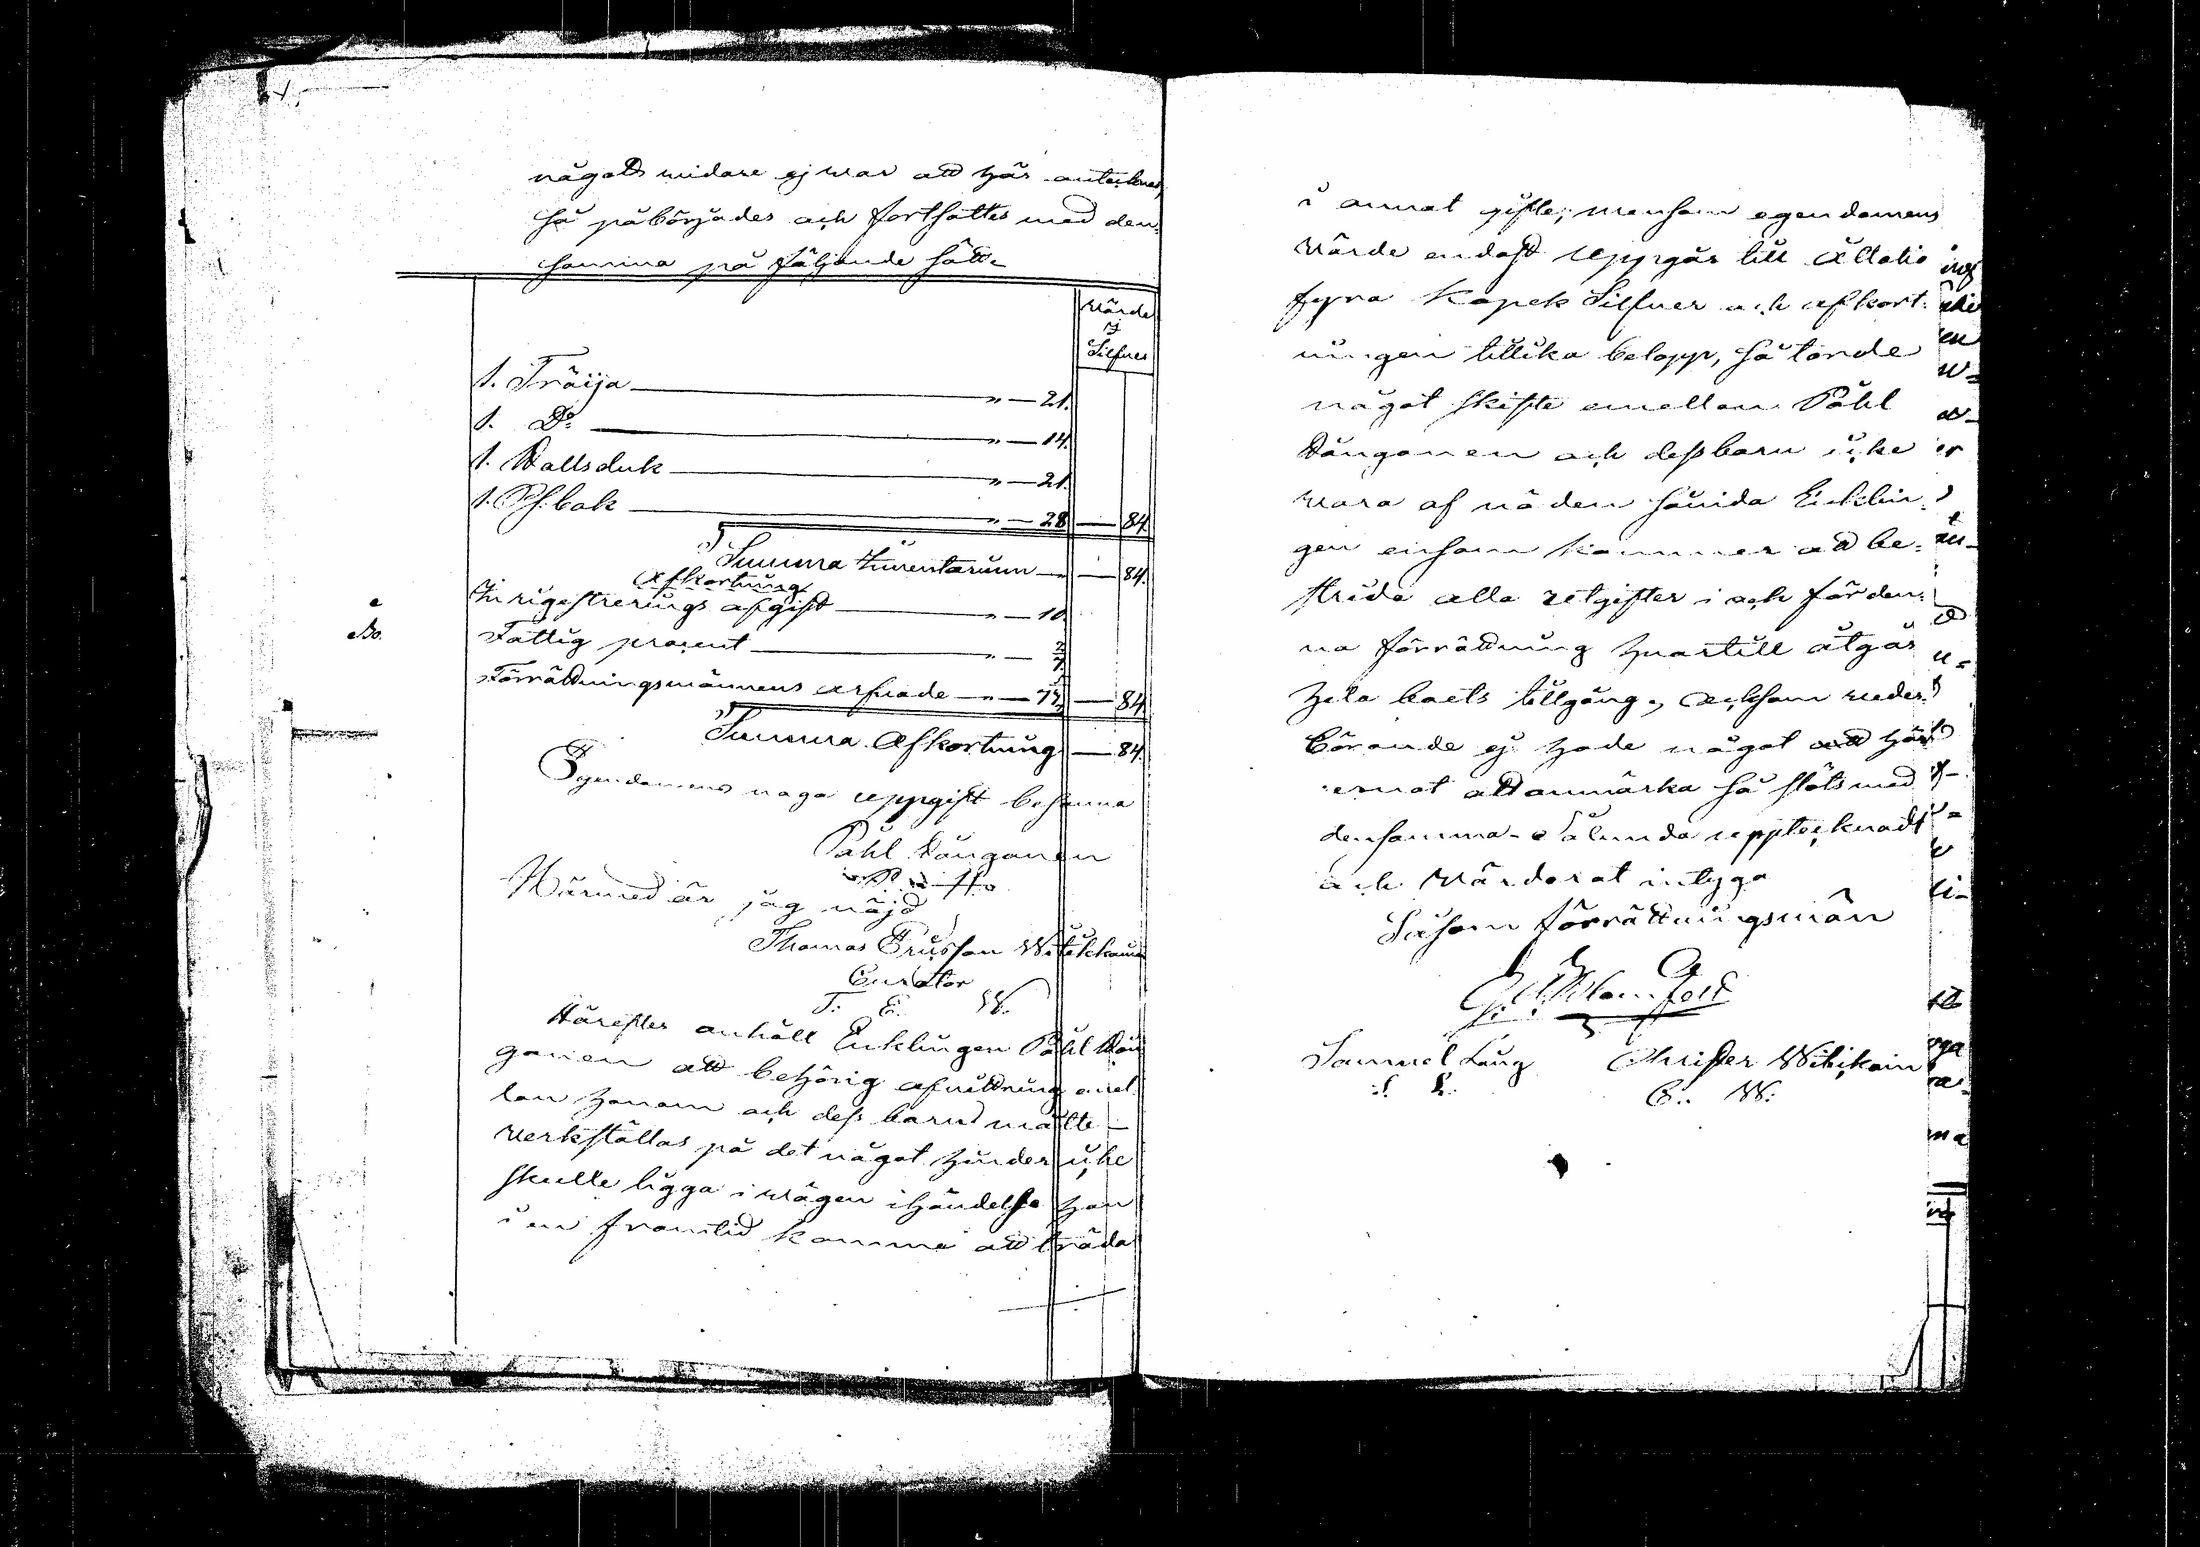 någott widare ej war att här antecknas,
så påbörjades och fortsattes med den-
samma på följande sätt.
Wärde
i
Silfver
1. Tröija — " — 21.
1. Do — " — 14.
1. Hallsduk — " — 21.
1. Ps: bok — " — 28 — 84.
Summa Inventarium — 84.
Afkortning
In rigestrerings afgift — " — 10.
Fattig procent — " —
Förrättningsmännens arfvode — " — 72 — 84
Summa Afkortning — 84.
Egendomens noga uppgift besanna
Påhl Hänganen
Härmed är jag nöjd
Thomas Ersson Witikkain
Curator
T. E. W.
Härefter anhöll Enklingen Påhl Hän
ganen att behörig afvittring emel
lan honom och dess barn måtte
werkställas på det något hinder icke
skulle ligga i wägen i händelse han
i en framtid komme att träda
i annat gifte; men som egendomens
wärde endast uppgår till Åttatio
fyra Kopek Silfver och afkort-
ningen tillika belopp, så torde
något skifte emellan Påhl
Hänganen och dess barn icke
wara af nöden hänida Enklin-
gen ensam kommer att be-
strida alla retgifter i och för den-
na förrättning hvartill åtgår
hela boets tillgång, och som weder-
börande ej hade något att här
emot att anmärka så slöts med
densamma. Sålunda upptecknadt
och Wärderat intyga
Såsom förrättningsmän
Samuel Lång Christer Witikain
S. L. C. W.